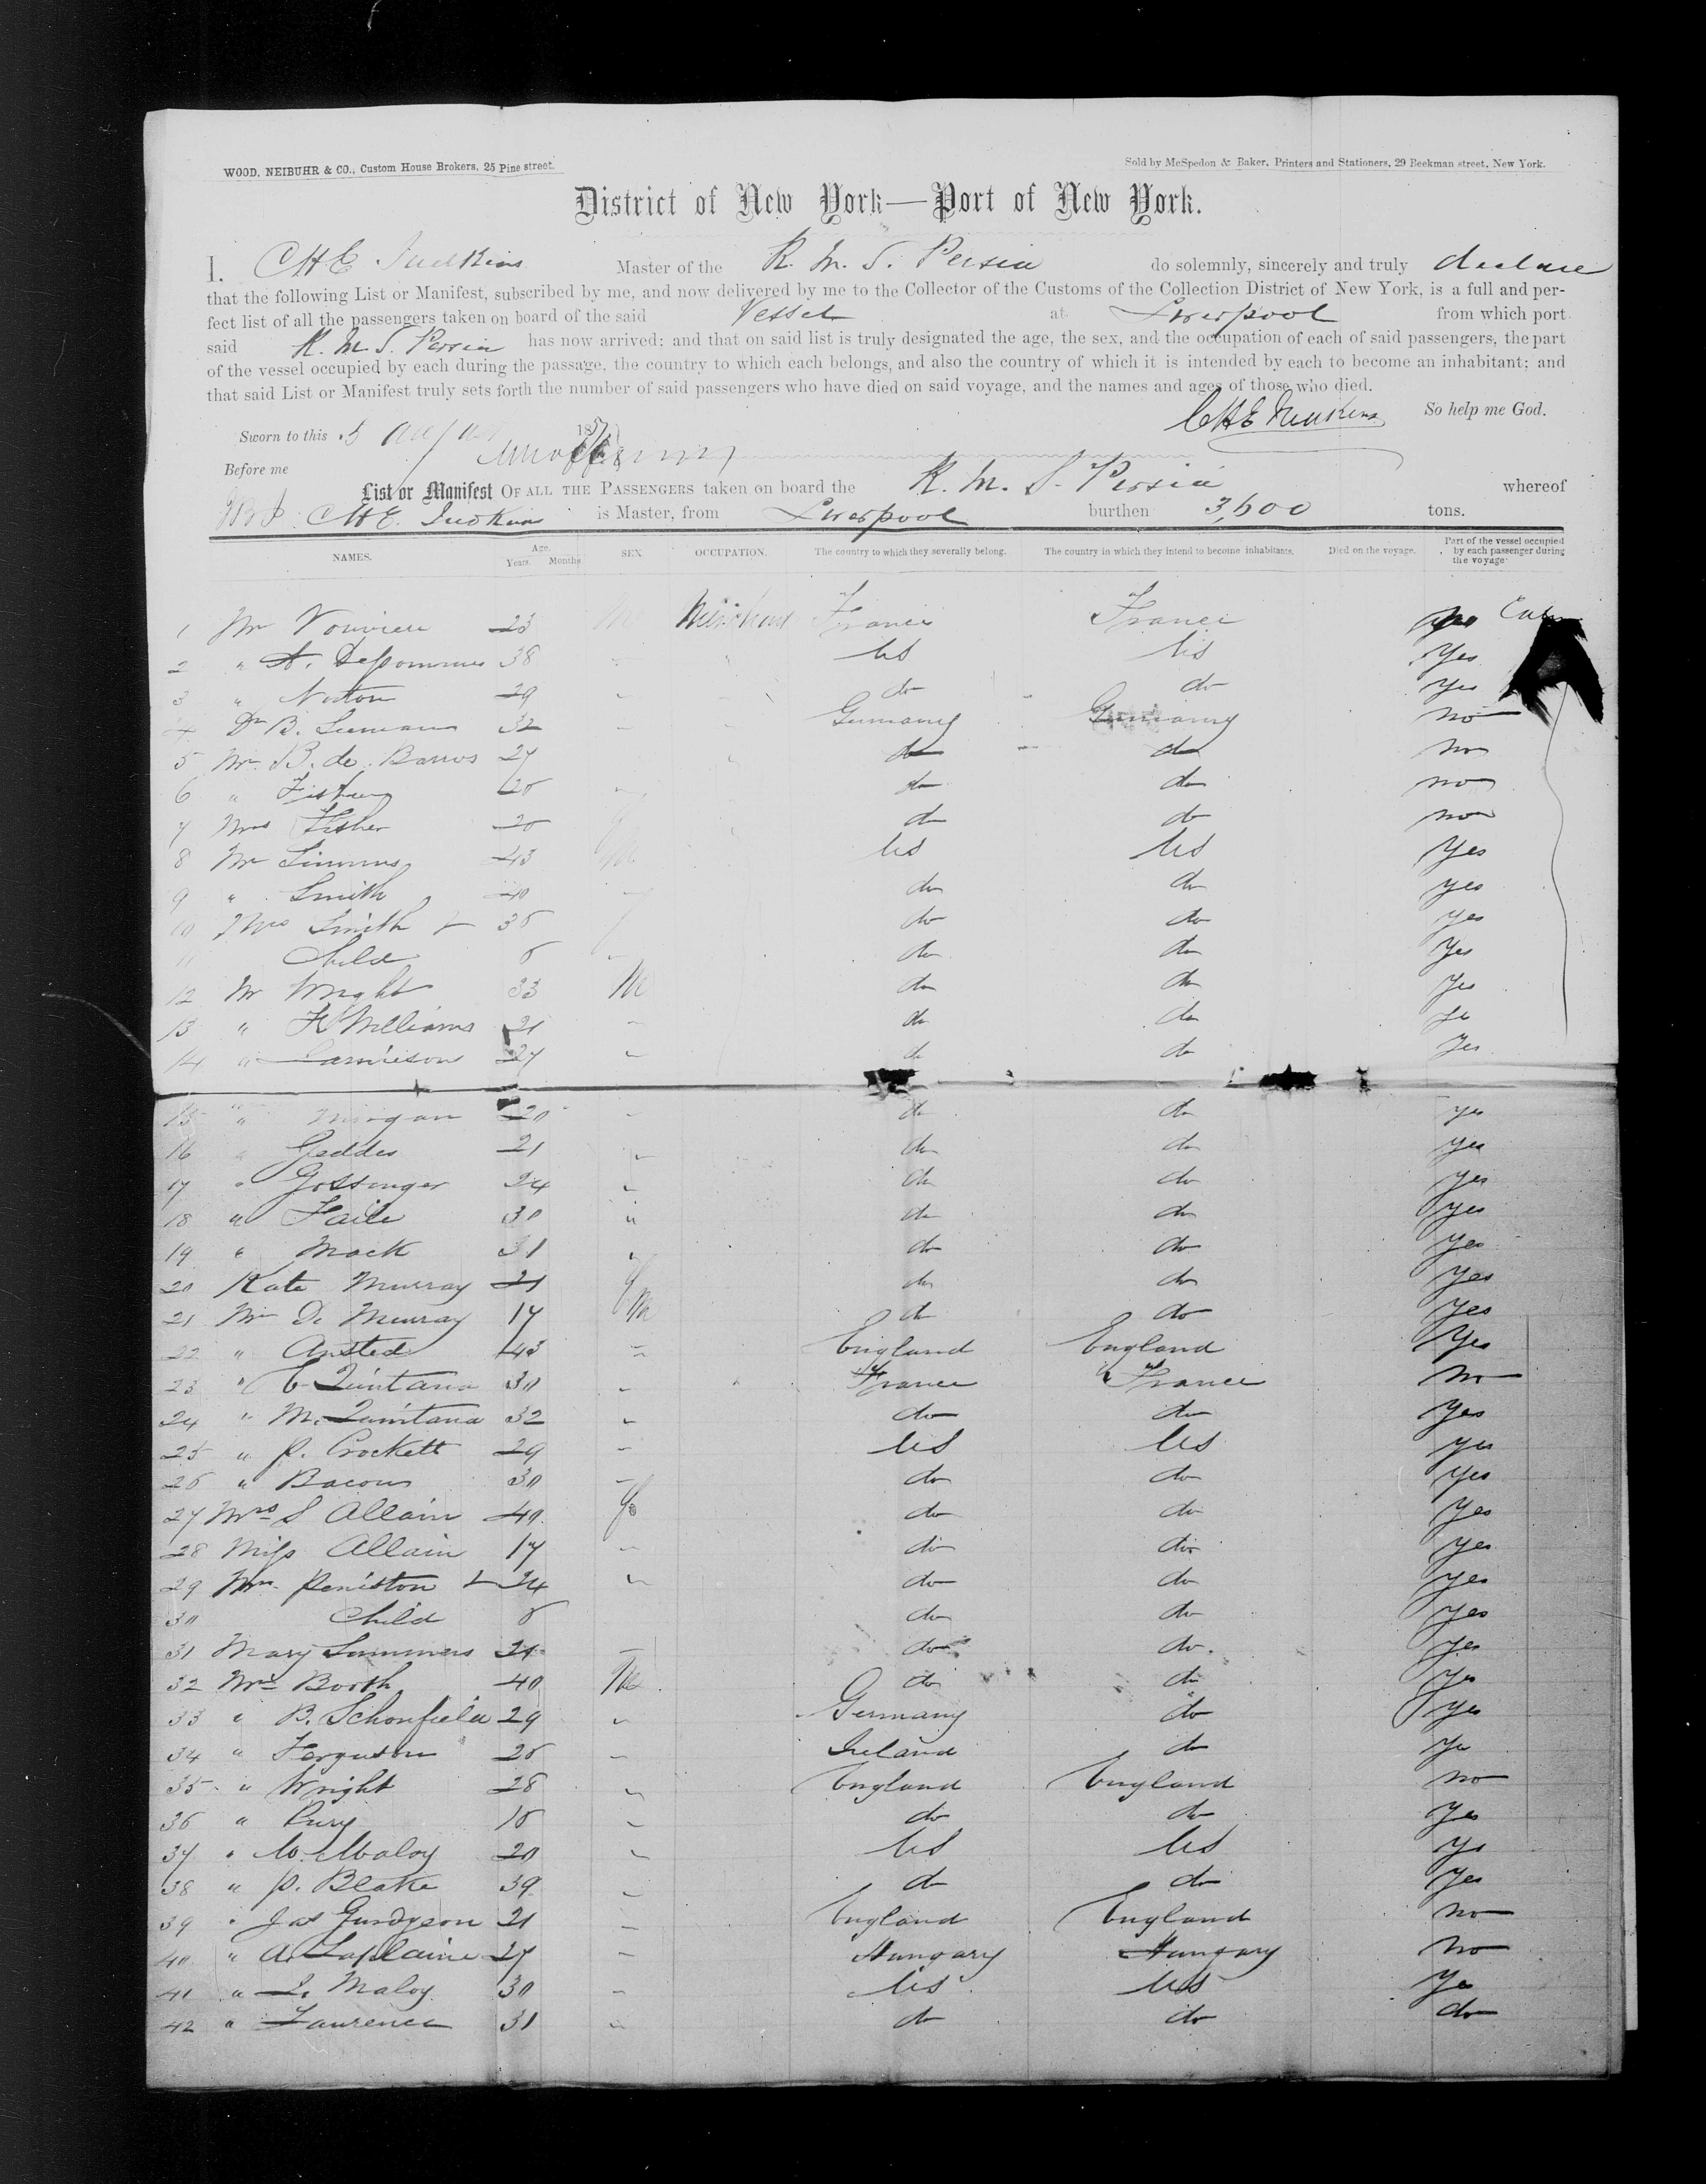 WOOD, NEIBUHR & CO., Custom House Brokers, 25 Pine street.
Sold by McSpedon & Baker, Printers and Stationers, 29 Beekman street, New York.
District of New York—Port of New York.
I, CHE Judkins Master of the R. M. S. Persia do solemnly, sincerely and truly declare
that the following List or Manifest, subscribed by me, and now delivered by me to the Collector of the Customs of the Collection District of New York, is a full and per-
fect list of all the passengers taken on board of the said Vessel at Liverpool from which port
said R. M. S. Persia has now arrived; and that on said list is truly designated the age, the sex, and the occupation of each of said passengers, the part
of the vessel occupied by each during the passage, the country to which each belongs, and also the country of which it is intended by each to become an inhabitant; and
that said List or Manifest truly sets forth the number of said passengers who have died on said voyage, and the names and ages of those who died.
CHE Judkins So help me God.
Sworn to this 5 185
Before me
List or Manifest OF ALL THE PASSENGERS taken on board the R. M. S. Persia whereof
CHE Judkins is Master, from Liverpool burthen 3,600 tons.
NAMES. Age. Years. Months SEX OCCUPATION. The country to which they severally belong. The country in which they intend to become inhabitants. Died on the voyage. Part of the vessel occupied by each passenger during the voyage
1 Mr 23 M Merchant France France no
2 " 38 US US Yes
3 " Norton 29 do do Yes
4 Dr B. 32 Germany Germany no
5 Mr B. de Barros 27 do do no
6 " do do no
7 Mrs Fisher do do no
8 Mr Simmns 43 M US US Yes
9 " Smith 40 do do yes
10 Mrs Smith & do do yes
11 Child do do Yes
12 Mr Wright 33 M do do Yes
13 " Williams 21 do do
14 " Jamieson 27 do do Yes
15 " Morgan 20 do do yes
16 " Geddes 21 do do yes
17 " Gossenger 24 do do yes
18 " Haile 30 " do do yes
19 " Mack 31 " do do Yes
20 Kate Murray 21 f do do Yes
21 Mr D. Murray 17 M do do Yes
22 " Ansted 43 England England Yes
23 " E Quintana 30 France France no
24 " M. Quintana 32 do do Yes
25 " P. Crockett 29 US US yes
26 " Bacon 30 do do Yes
27 Mrs S Allain 40 f do do Yes
28 Miss Allain 17 do do Yes
29 Mrs Peniston & 24 do do Yes
30 Child do do Yes
31 Mary Summers 21 do do. Yes
32 Mr Booth 40 M do do Yes
33 " B. Schonfield 29 Germany do Yes
34 " Ferguson Ireland do Ye
35 " Wright 28 England England no
36 " do do Yes
37 " Maloy 20 US US Ys
38 " P. Blake 39 do do Yes
39 " Jas Gurdgeon 21 England England no
40 " A. Laplaine 27 Hungary Hungary no
41 " Maloy 30 US US Ye
42 " Laurence 31 do do do